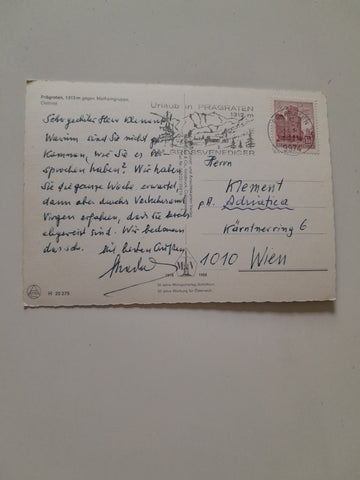 Prägraten, 1312 m gegen Malhamgruppe,
Osttirol
Sehr geehrter Herr Klement
Warum sind Sie nicht ge-
kommen, wie Sie es ver-
sprochen haben? Wir haben
Sie die ganze Woche erwartet
dann aber durch Verkehrsamt
Virgen erfahren, dass Sie bereits
abgereist sind. Wir bedauern
das sehr. Mit besten Grüßen
H 20 275
1958
Urlaub in PRÄGRATEN
1312 m
GROSSVENEDIGER
9974
Herrn
Klement
p.A. Adriatica
Kärntnerring 6
1010 Wien